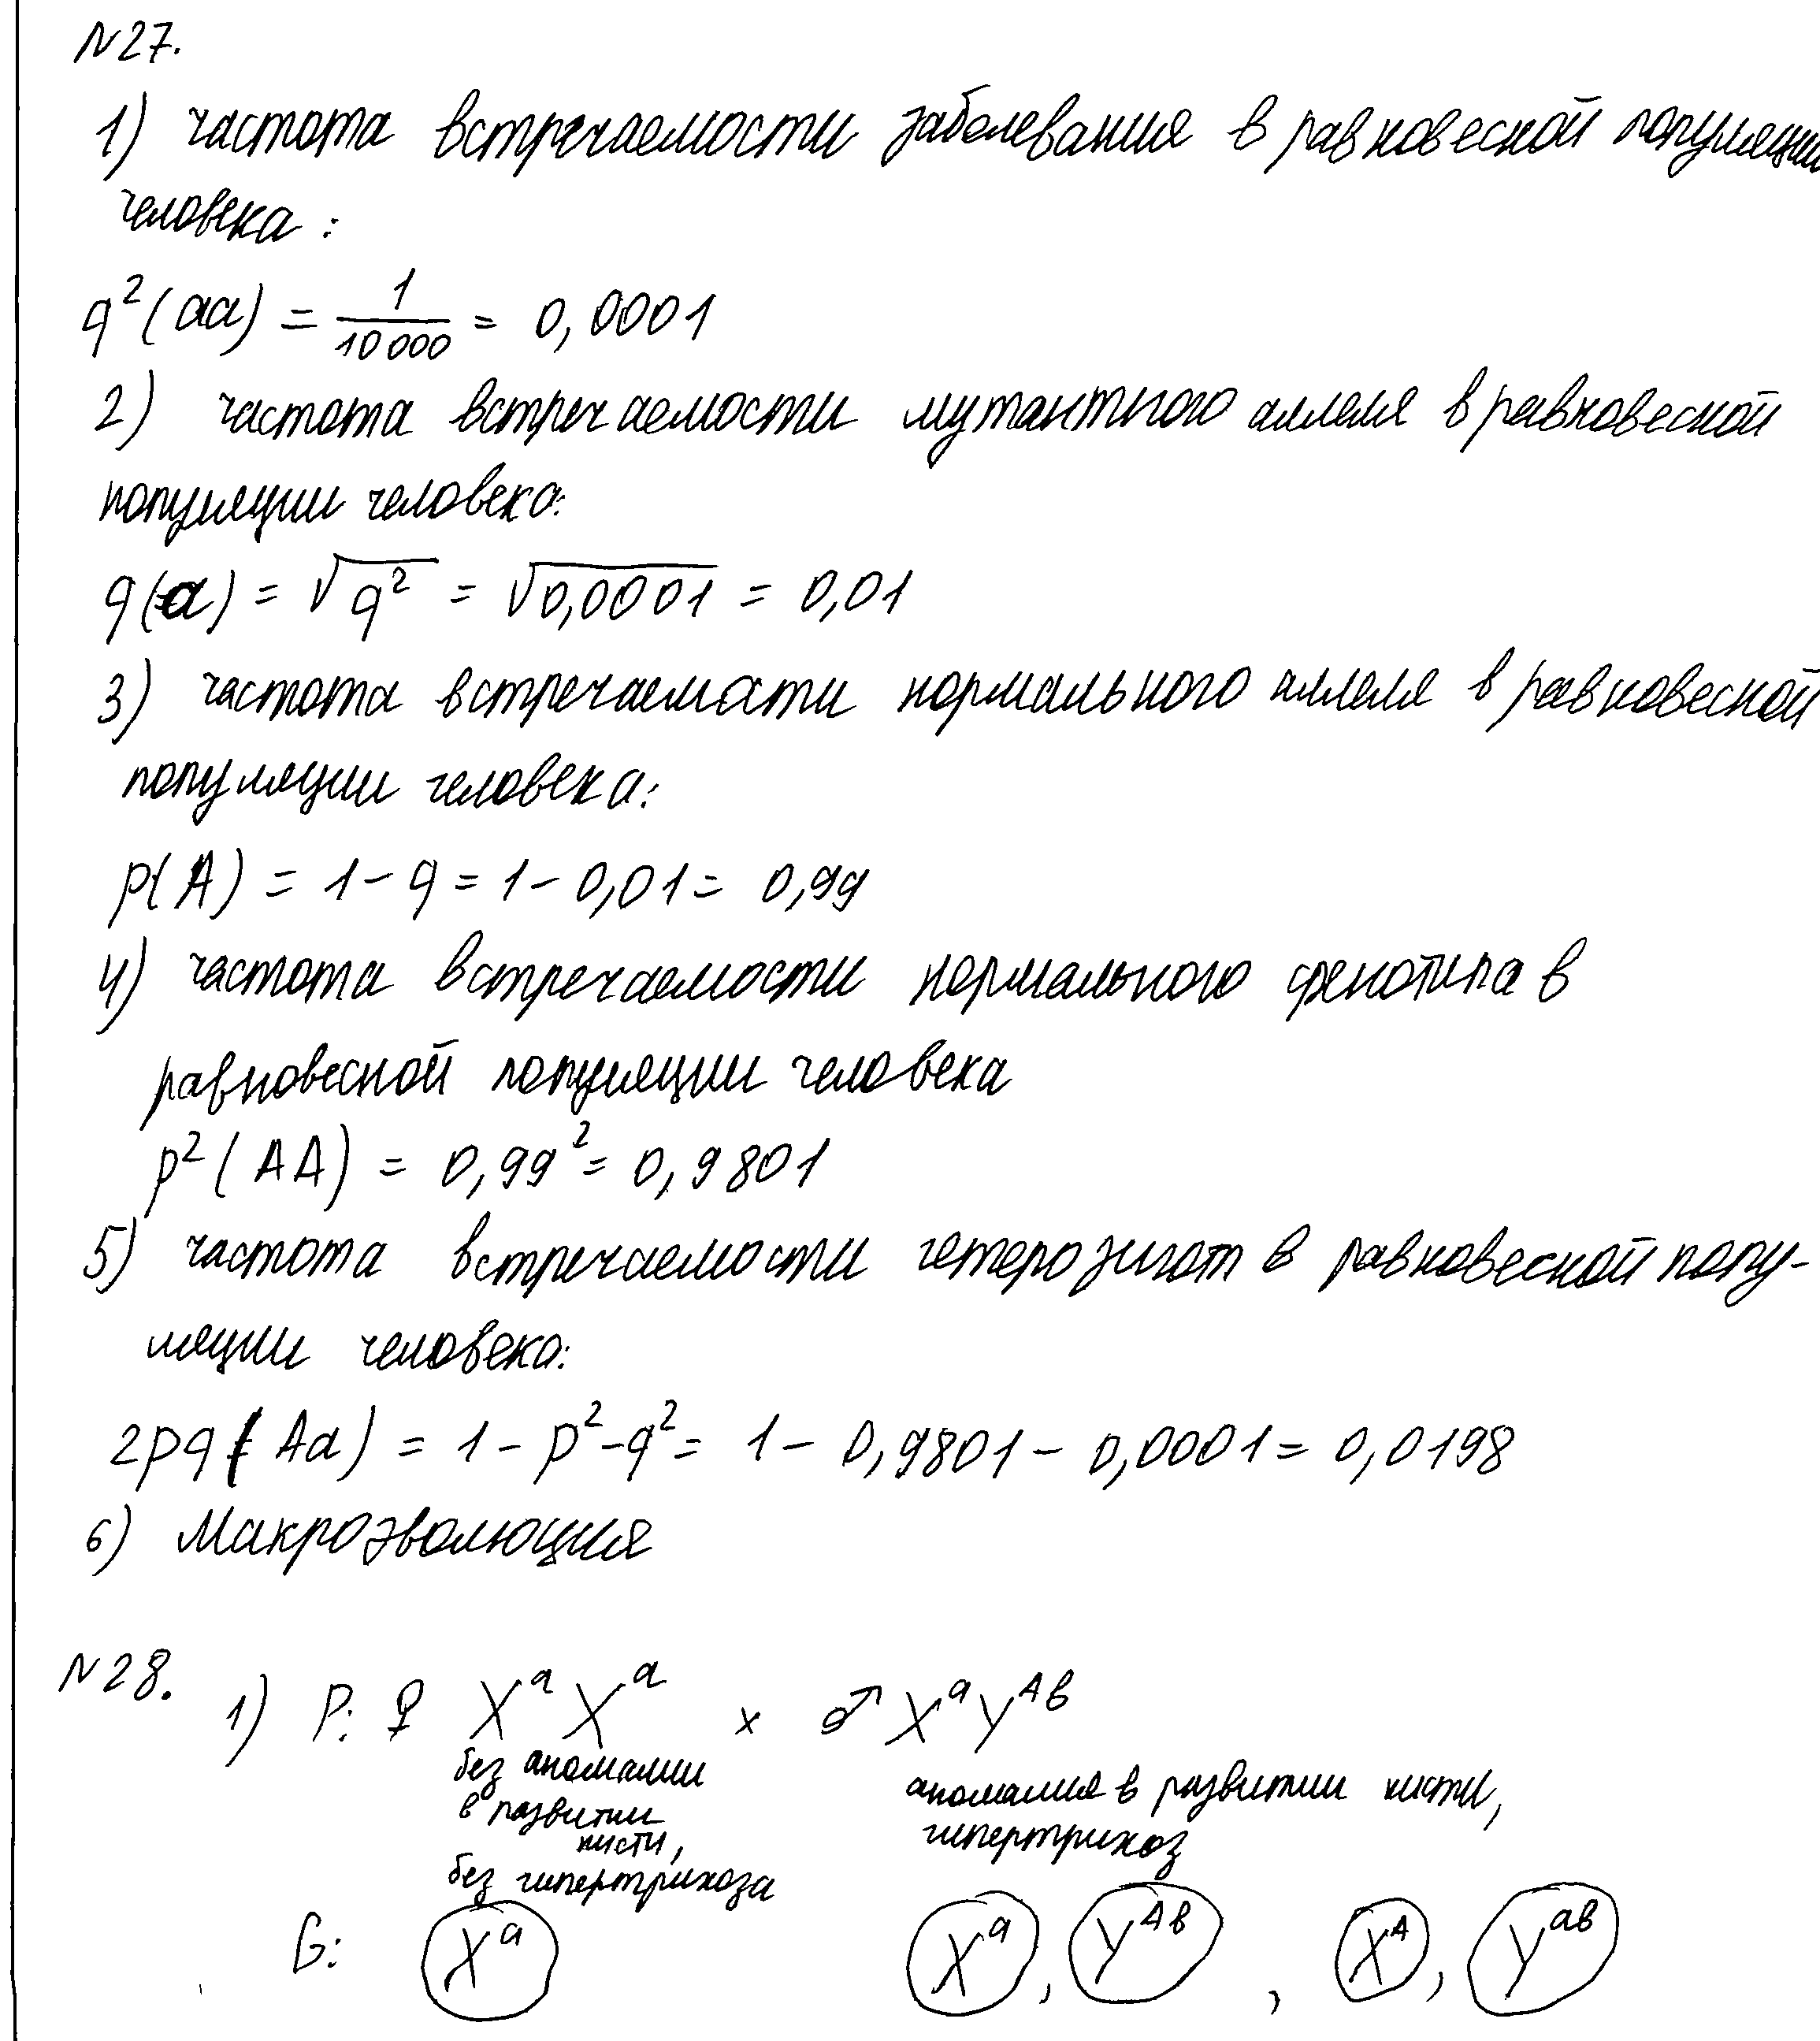 №27.
1) частота встречаемости заболевания в равновесной популяции
человека:
q²(aa) = 1/10 000 = 0,0001
2) частота встречаемости мутантного аллеля в равновесной
популяции человека:
q(a) = √q² = √0,0001 = 0,01
3) частота встречаемости нормального аллеля в равновесной
популяции человека:
p(A) = 1 - q = 1 - 0,01 = 0,99
4) частота встречаемости нормального фенотипа в
равновесной популяции человека
p²(AA) = 0,99² = 0,9801
5) частота встречаемости гетерозигот в равновесной попу-
ляции человека:
2pq(Aa) = 1 - p² - q² = 1 - 0,9801 - 0,0001 = 0,0198
6) Макроэволюция
№28. 1) P: ♀ XᵃXᵃ × ♂ XᵃYᴬᵇ
без аномалии
в развитии
кисти,
без гипертрихоза
аномалия в развитии кисти,
гипертрихоз
G: Xᵃ Xᵃ, Yᴬᵇ, Xᴬ, Yᵃᵇ